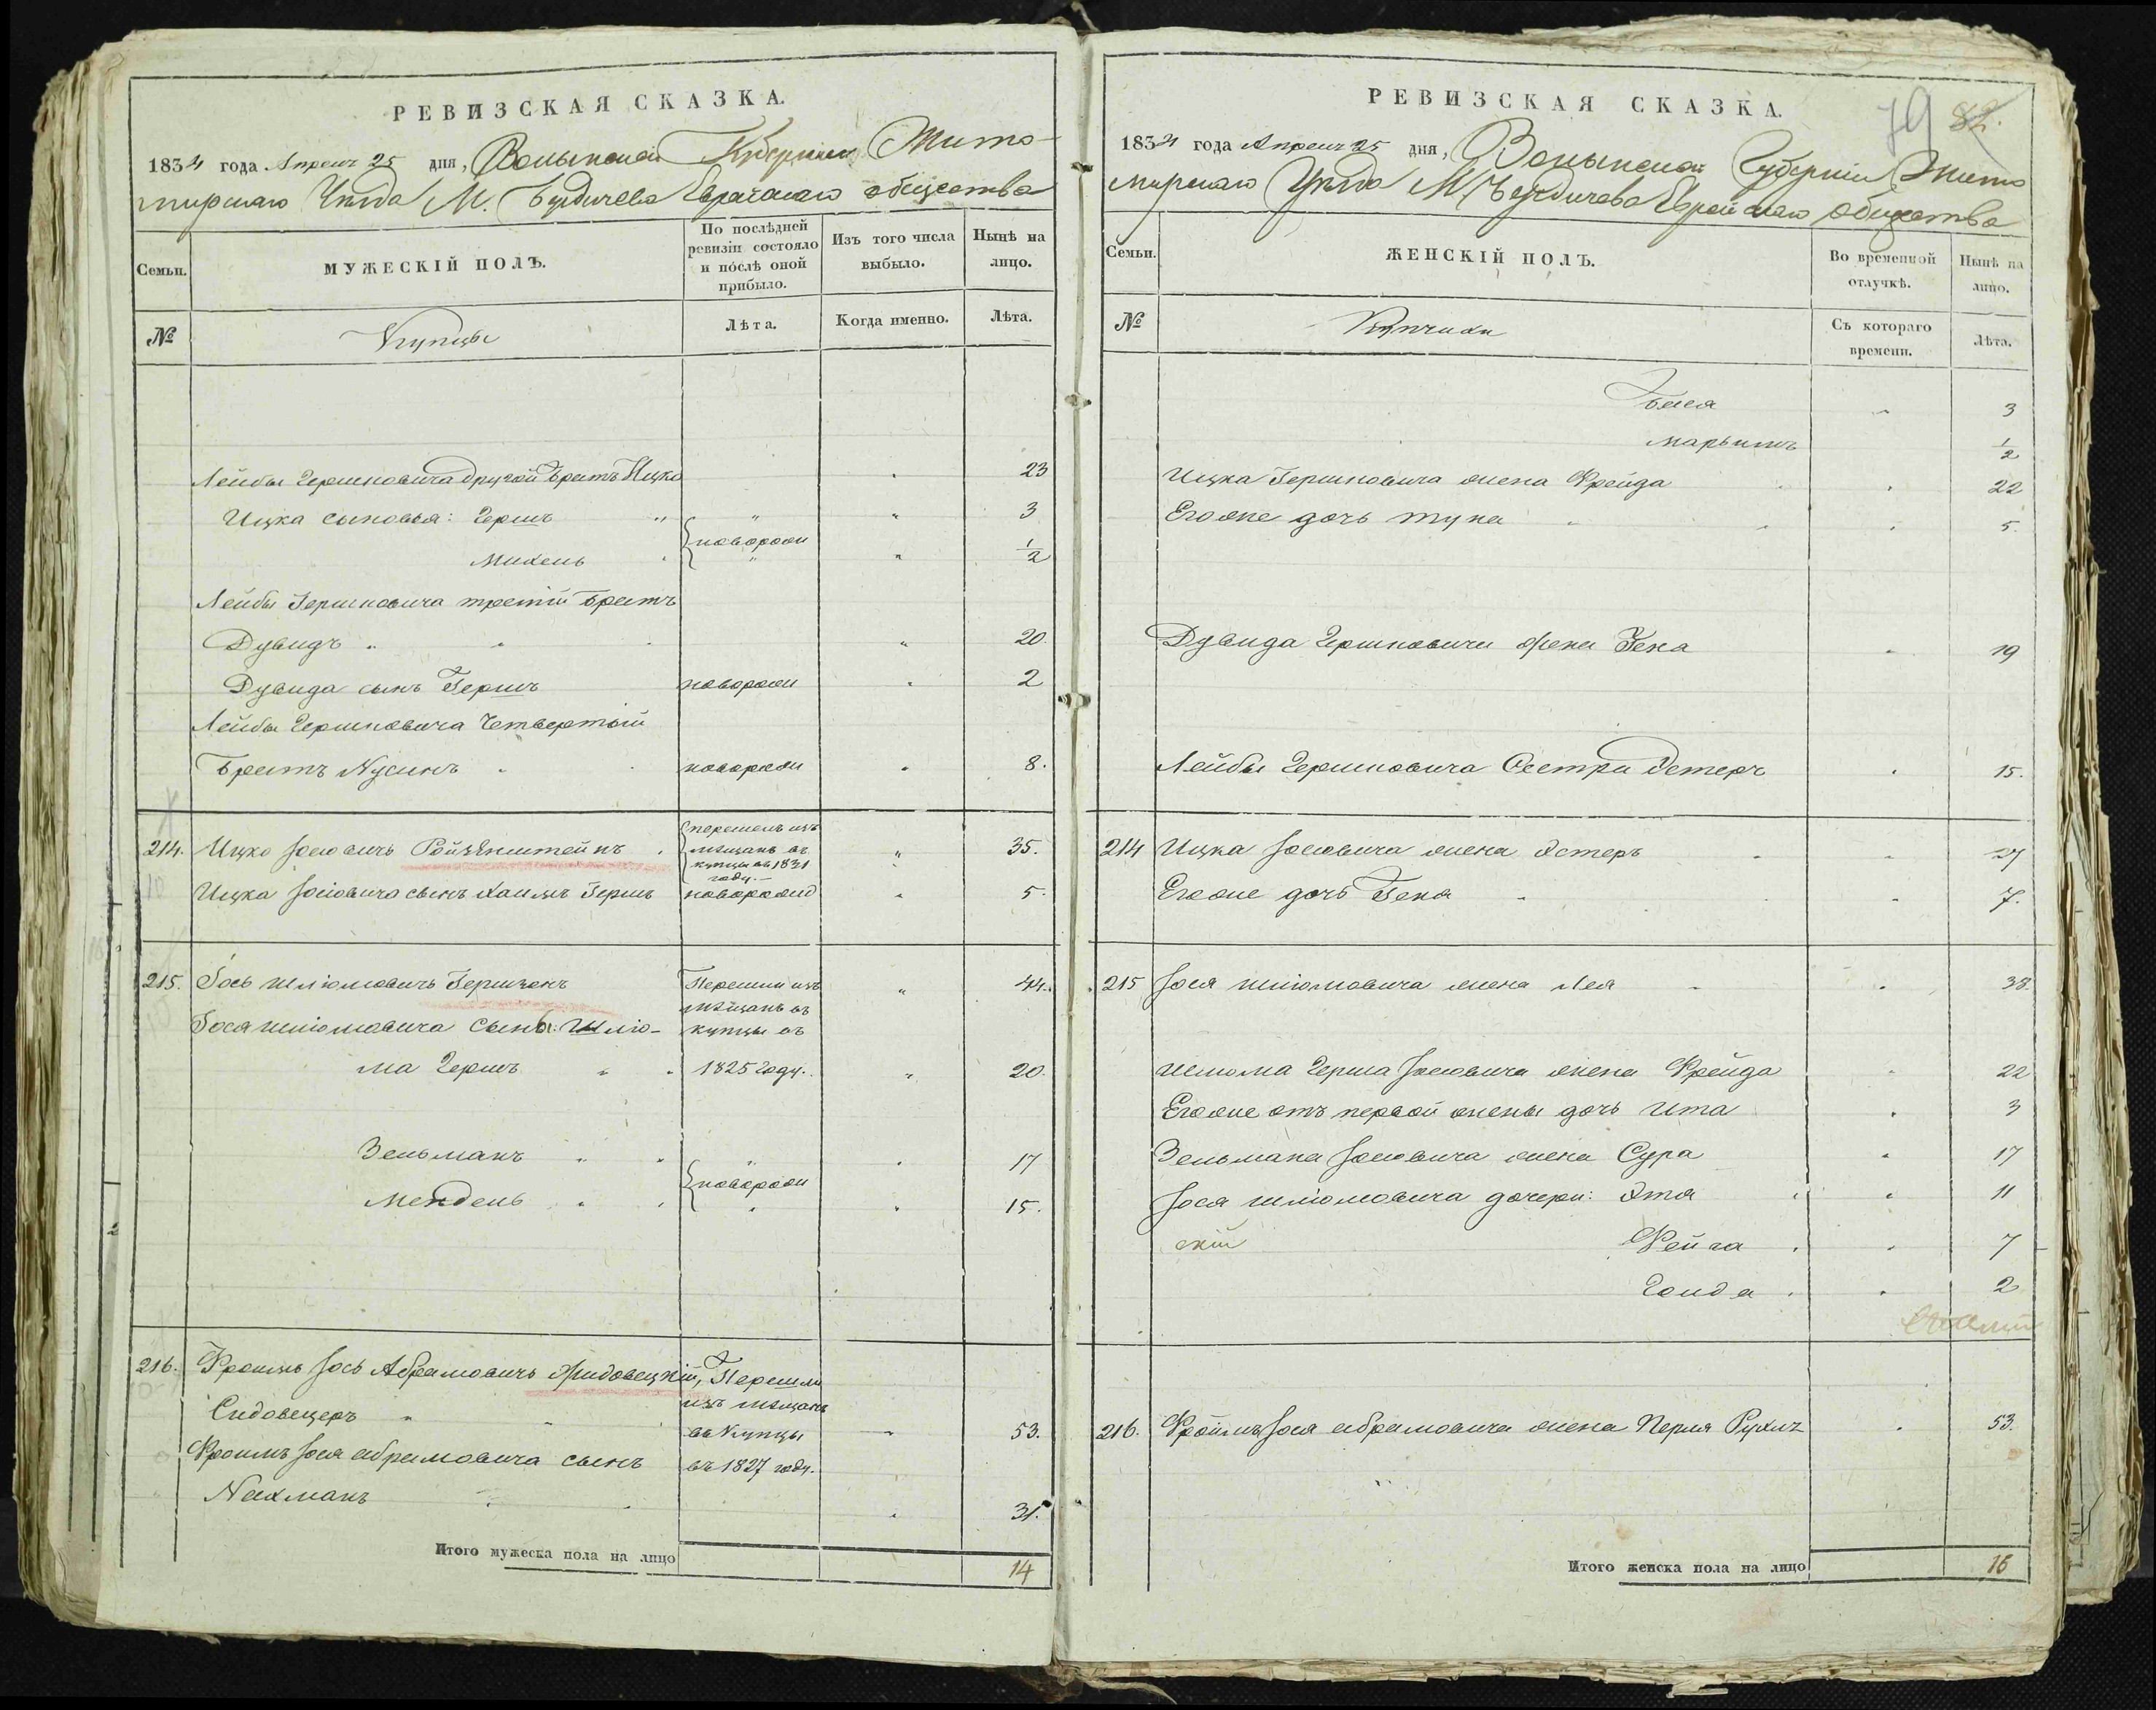 РЕВИЗСКАЯ СКАЗКА.
1834 года Апреля 25 дня, Волынской Губернии Жито-
мирскаго Уезда М. Бердичева Еврейскаго общества
Семьи.
МУЖЕСКІЙ ПОЛЪ.
По послѣдней ревизіи состояло и послѣ оной прибыло.
Изъ того числа выбыло.
Нынѣ на лицо.
№
Купцы
Лѣта.
Когда именно.
Лѣта.
Лейбы Гершковича другой Братъ Ицко " 23
Ицка сыновья: Гершъ " " " 3
Михель новорожд " 1/2
Лейбы Гершковича третій Братъ
Дувидъ " " 20.
Дувида сынъ Гершъ новорожд " 2
Лейбы Гершковича Четвертый
Братъ Нусинъ новорожд " 8.
214. Ицко Іосіовичъ Ройзенштейнъ перешелъ изъ мѣщанъ въ купцы въ 1831 году.- " 35.
Ицка Іосіовича сынъ Хаимъ Гершъ новорожд " 5.
215. Іось Шліомовичъ Гершзонъ Перешли изъ " 44.
мѣщанъ въ
Іося Шліомовича сыны: Шліо- купцы въ
ма Гершъ " 1825 году. " 20.
Зельманъ " " " 17
Мендель " новорожд " 15.
216. Фроимъ Іось Абрамовичъ Жидовецкій, Перешли
изъ мѣщанъ
Сидовецеръ " въ Купцы " 53.
Фроимъ Іося Абрамовича сынъ въ 1827 году.
Нахманъ " 31.
Итого мужеска пола на лицо 14
РЕВИЗСКАЯ СКАЗКА.
79 82.
1834 года Апреля 25 дня, Волынской Губерніи Жито
мирскаго Уезда М Бердичева Еврейскаго общества
Семьи.
ЖЕНСКІЙ ПОЛЪ.
Во временной отлучкѣ.
Нынѣ на лицо.
№
Купчихи
Съ котораго времени.
Лѣта.
Бася " 3
Марьямъ 1/2
Ицка Гершковича жена Фрейда " 22
Егоже дочь " 5.
Дувида Гершковича жена Геня " 19
Лейбы Гершковича Сестра Эстеръ " 15.
214 Ицка Іосіовича жена Эстеръ " 27
Егоже дочь Геня " 7.
215 Іося Шліомовича жена Лея " 38.
Шліома Герша Іосіовича жена Фрейда " 22
Егоже отъ первой жены дочь Ита " 3
Зельмана Іосіовича жена Сура " 17
Іося Шліомовича дочери: Этя " 11
скій Фейга " 7
Голда " 2
216. Фроимъ Іося Абрамовича жена Перля Рухль " 53.
Итого женска пола на лицо 16